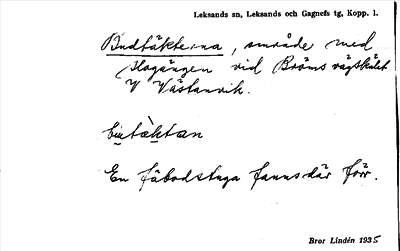 Leksands sn, Leksands och Gagnefs tg, Kopp. l.
Budtäkterna, område med
skogängen vid Bröms vägskälet
V Västanvik.
En fäbodstuga fanns där förr.
Bror Lindén 1935